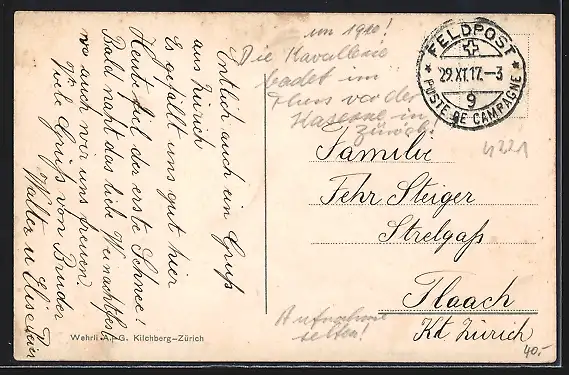 Entlich auch ein Gruß
aus Zürich
Es gefällt uns gut hier
Heute fiel der erste Schnee!
Bald naht das liebe Weinachtsfest
wo auch wir uns freuen.
Viele Grüße von Bruder
Walter u Elise
um 1910!
Die Kavallerie
badet im
Fluss vor der
Kaserne in
Zürich!
FELDPOST
29.XI.17.-3
9
POSTE DE CAMPAGNE
4221
Familie
Fehr Steiger
Strelgaß
Flaach
Kt Zürich
Aufnahme
selten!
Wehrli A.-G. Kilchberg-Zürich
40.-